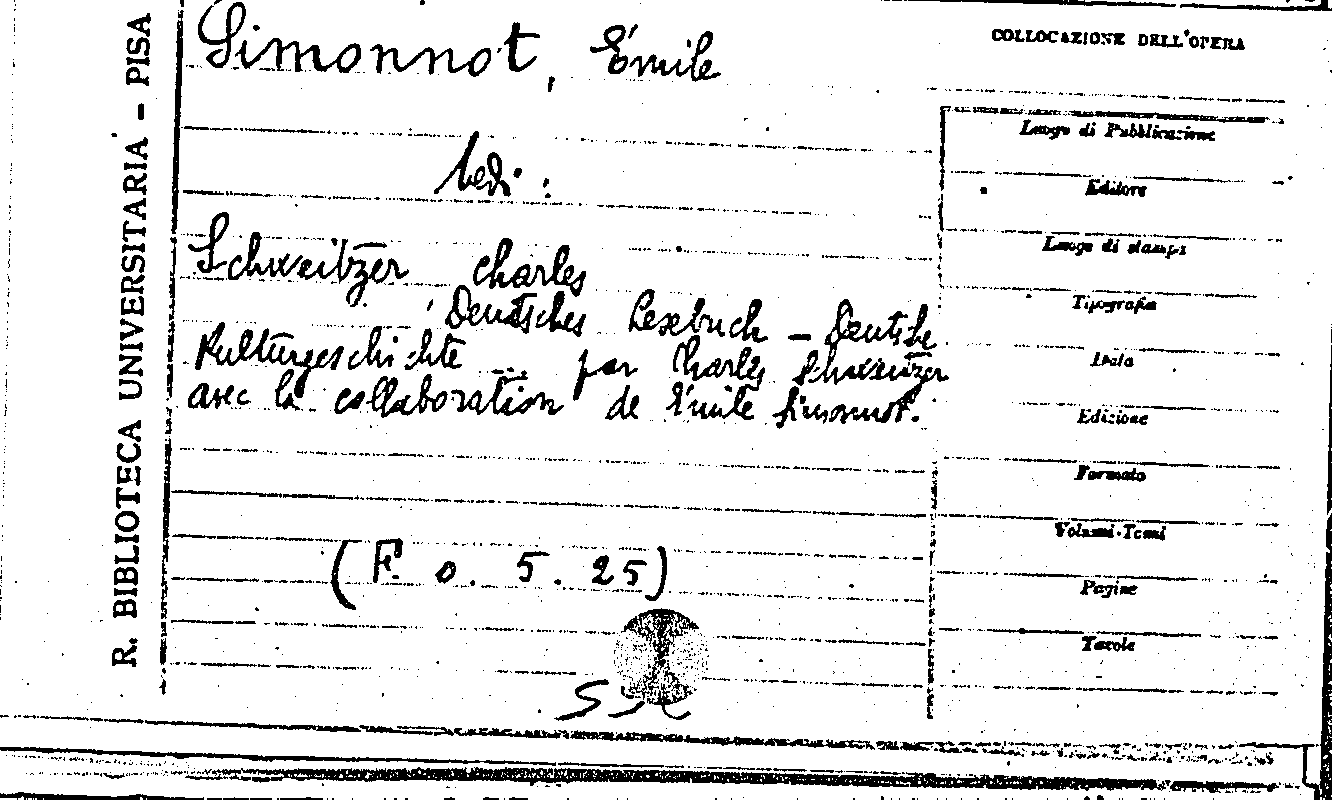 R. BIBLIOTECA UNIVERSITARIA - PISA
Simonnot, Émile
Vedi:
Schweitzer Charles
Deutsches Lesebuch - Deutsche
Kulturgeschichte ... par Charles Schweitzer
avec la collaboration de Émile Simonnot.
(F. o. 5. 25)
COLLOCAZIONE DELL'OPERA
Luogo di Pubblicazione
Editore
Luogo di stampa
Tipografia
Data
Edizione
Formato
Volumi-Tomi
Pagine
Tavole